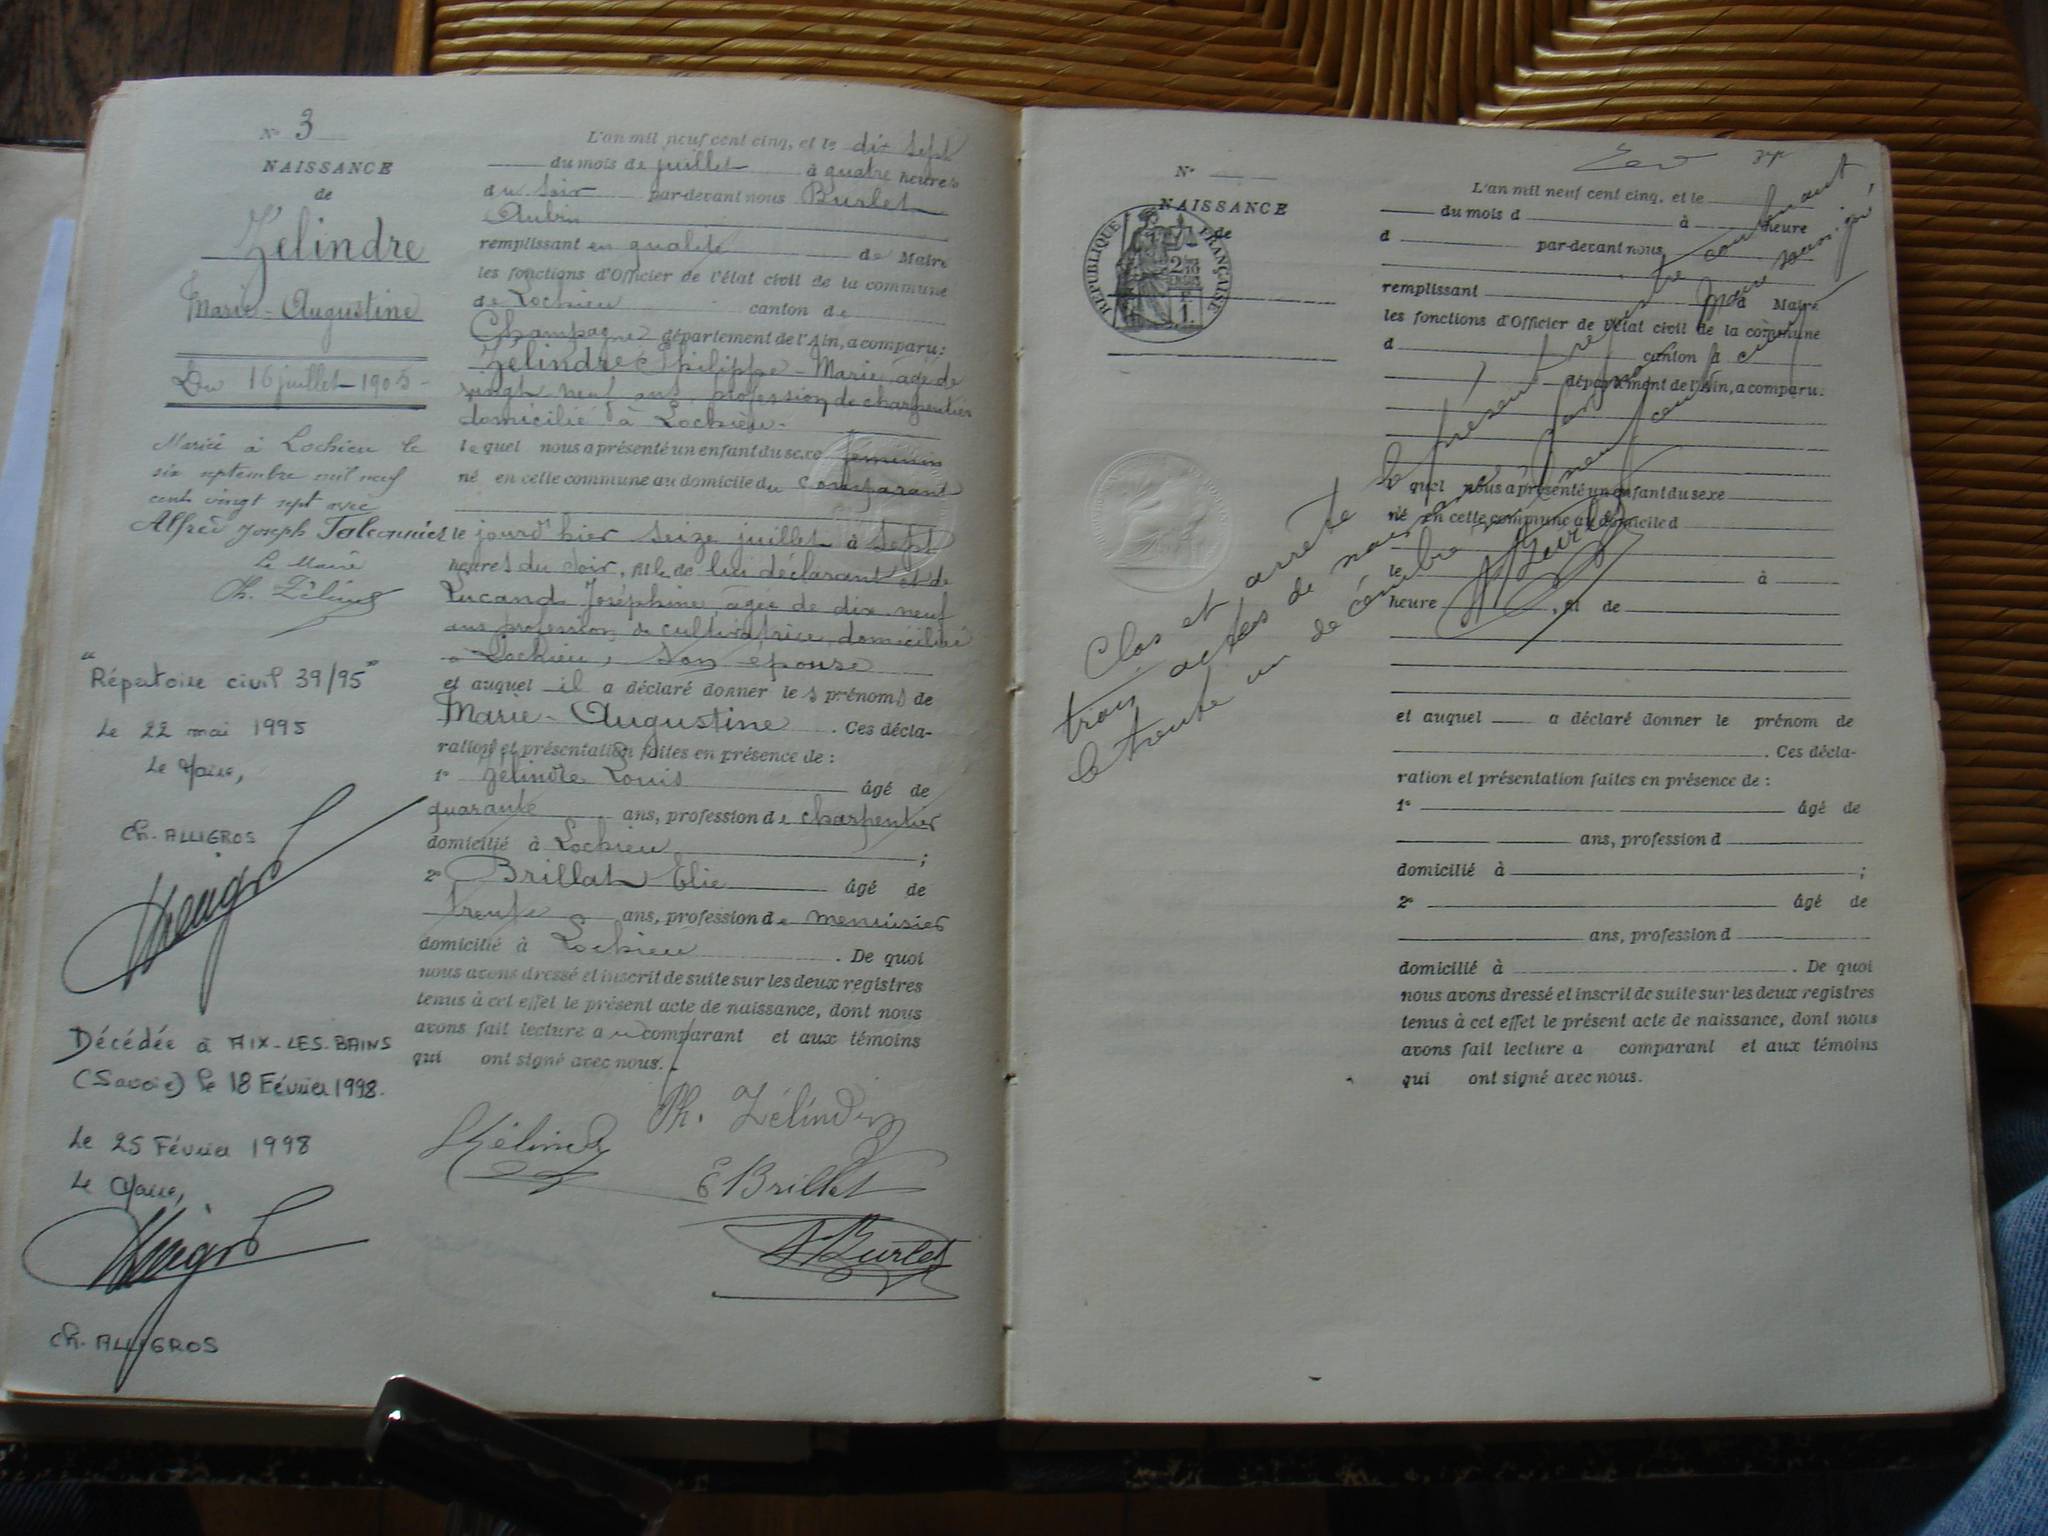 N° 3
NAISSANCE
de
Zélindre
Marie-Augustine
Du 16 juillet 1905
Marié à Lochieu le
six septembre mil neuf
cent vingt sept avec
Alfred Joseph Falconnier
Le Maire
Ph. Zélindre
"Répertoire civil 39/95"
Le 22 mai 1995
Le Maire,
Ch. ALLIGROS
Décédée à AIX-LES-BAINS
(Savoie) le 18 Février 1998.
Le 25 Février 1998
Le Maire,
Ch. ALLIGROS
L'an mil neuf cent cinq, et le dix sept
du mois de juillet à quatre heures
du soir par-devant nous Burlet
Aubin
remplissant en qualité de Maire
les fonctions d'Officier de l'état civil de la commune
de Lochieu canton de
Champagne département de l'Ain, a comparu:
Zélindre Philippe-Marie, âgé de
vingt neuf ans, profession de charpentier
domicilié à Lochieu.
lequel nous a présenté un enfant du sexe féminin
né en cette commune au domicile du comparant
le jourd'hier seize juillet à sept
heures du soir, fille de lui déclarant et de
Lucand Joséphine, agée de dix neuf
ans profession de cultivatrice, domiciliée
à Lochieu, son épouse
et auquel il a déclaré donner les prénoms de
Marie-Augustine. Ces décla-
ration et présentation faites en présence de :
1° Zélindre Louis âgé de
quarante ans, profession de charpentier
domicilié à Lochieu ;
2° Brillat Elie âgé de
trente ans, profession de menuisier
domicilié à Lochieu. De quoi
nous avons dressé et inscrit de suite sur les deux registres
tenus à cet effet le présent acte de naissance, dont nous
avons fait lecture au comparant et aux témoins
qui ont signé avec nous.
Ph. Zélindre
LZélindre
E Brillat
A Burlet
N°
NAISSANCE
de
RÉPUBLIQUE FRANÇAISE
L'an mil neuf cent cinq, et le
du mois d à heure
d par-devant nous
remplissant d Maire
les fonctions d'Officier de l'état civil de la commune
d canton d
département de l'Ain, a comparu.
le quel nous a présenté un enfant du sexe
né en cette commune au domicile d
le à
heure , et de
et auquel a déclaré donner le prénom de
. Ces décla-
ration et présentation faites en présence de :
1° âgé de
ans, profession d
domicilié à ;
2° âgé de
ans, profession d
domicilié à . De quoi
nous avons dressé et inscrit de suite sur les deux registres
tenus à cet effet le présent acte de naissance, dont nous
avons fait lecture a comparant et aux témoins
qui ont signé avec nous.
Clos et arrêté le présent registre contenant
trois actes de naissance par nous maire
le trente un décembre mil neuf cent cinq
A Burlet